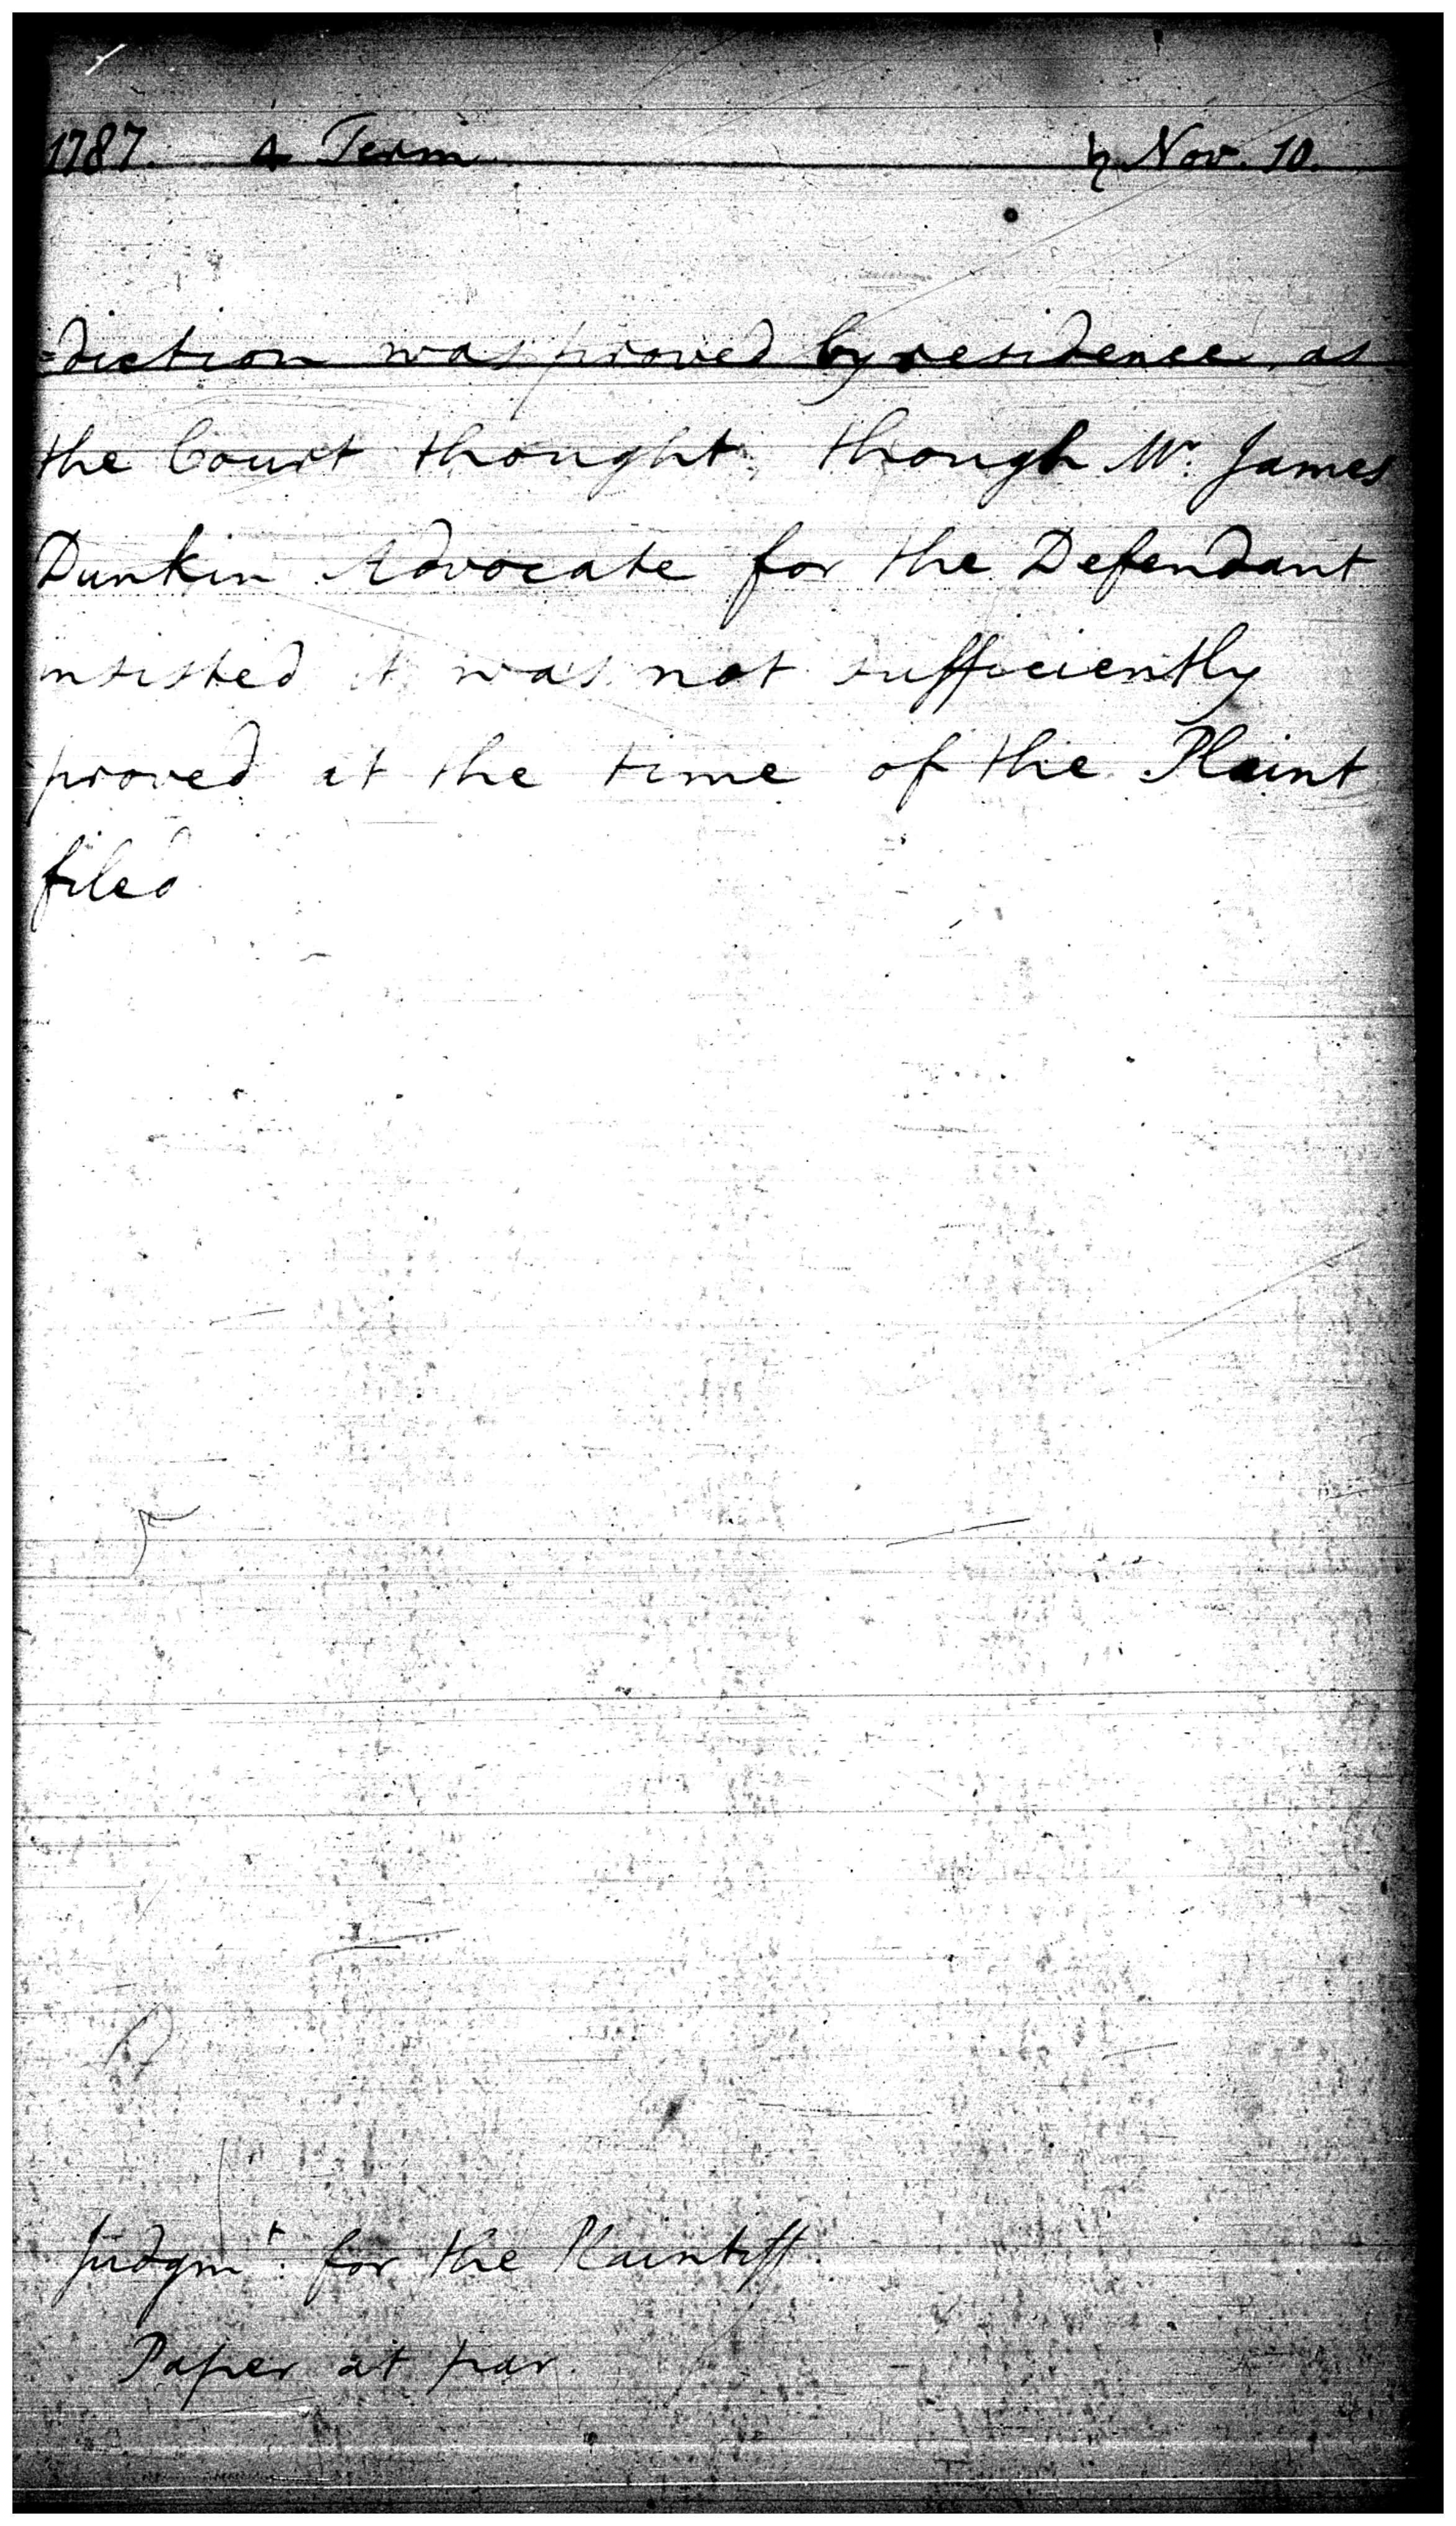 1787. 4 Term ♄ Nov. 10.
=diction was proved by residence as
the Court thought, though Mr. James
Dunkin Advocate for the Defendant
insisted it was not sufficiently
proved at the time of the Plaint
filed
Judgmt. for the Plaintiff.
Paper at par.